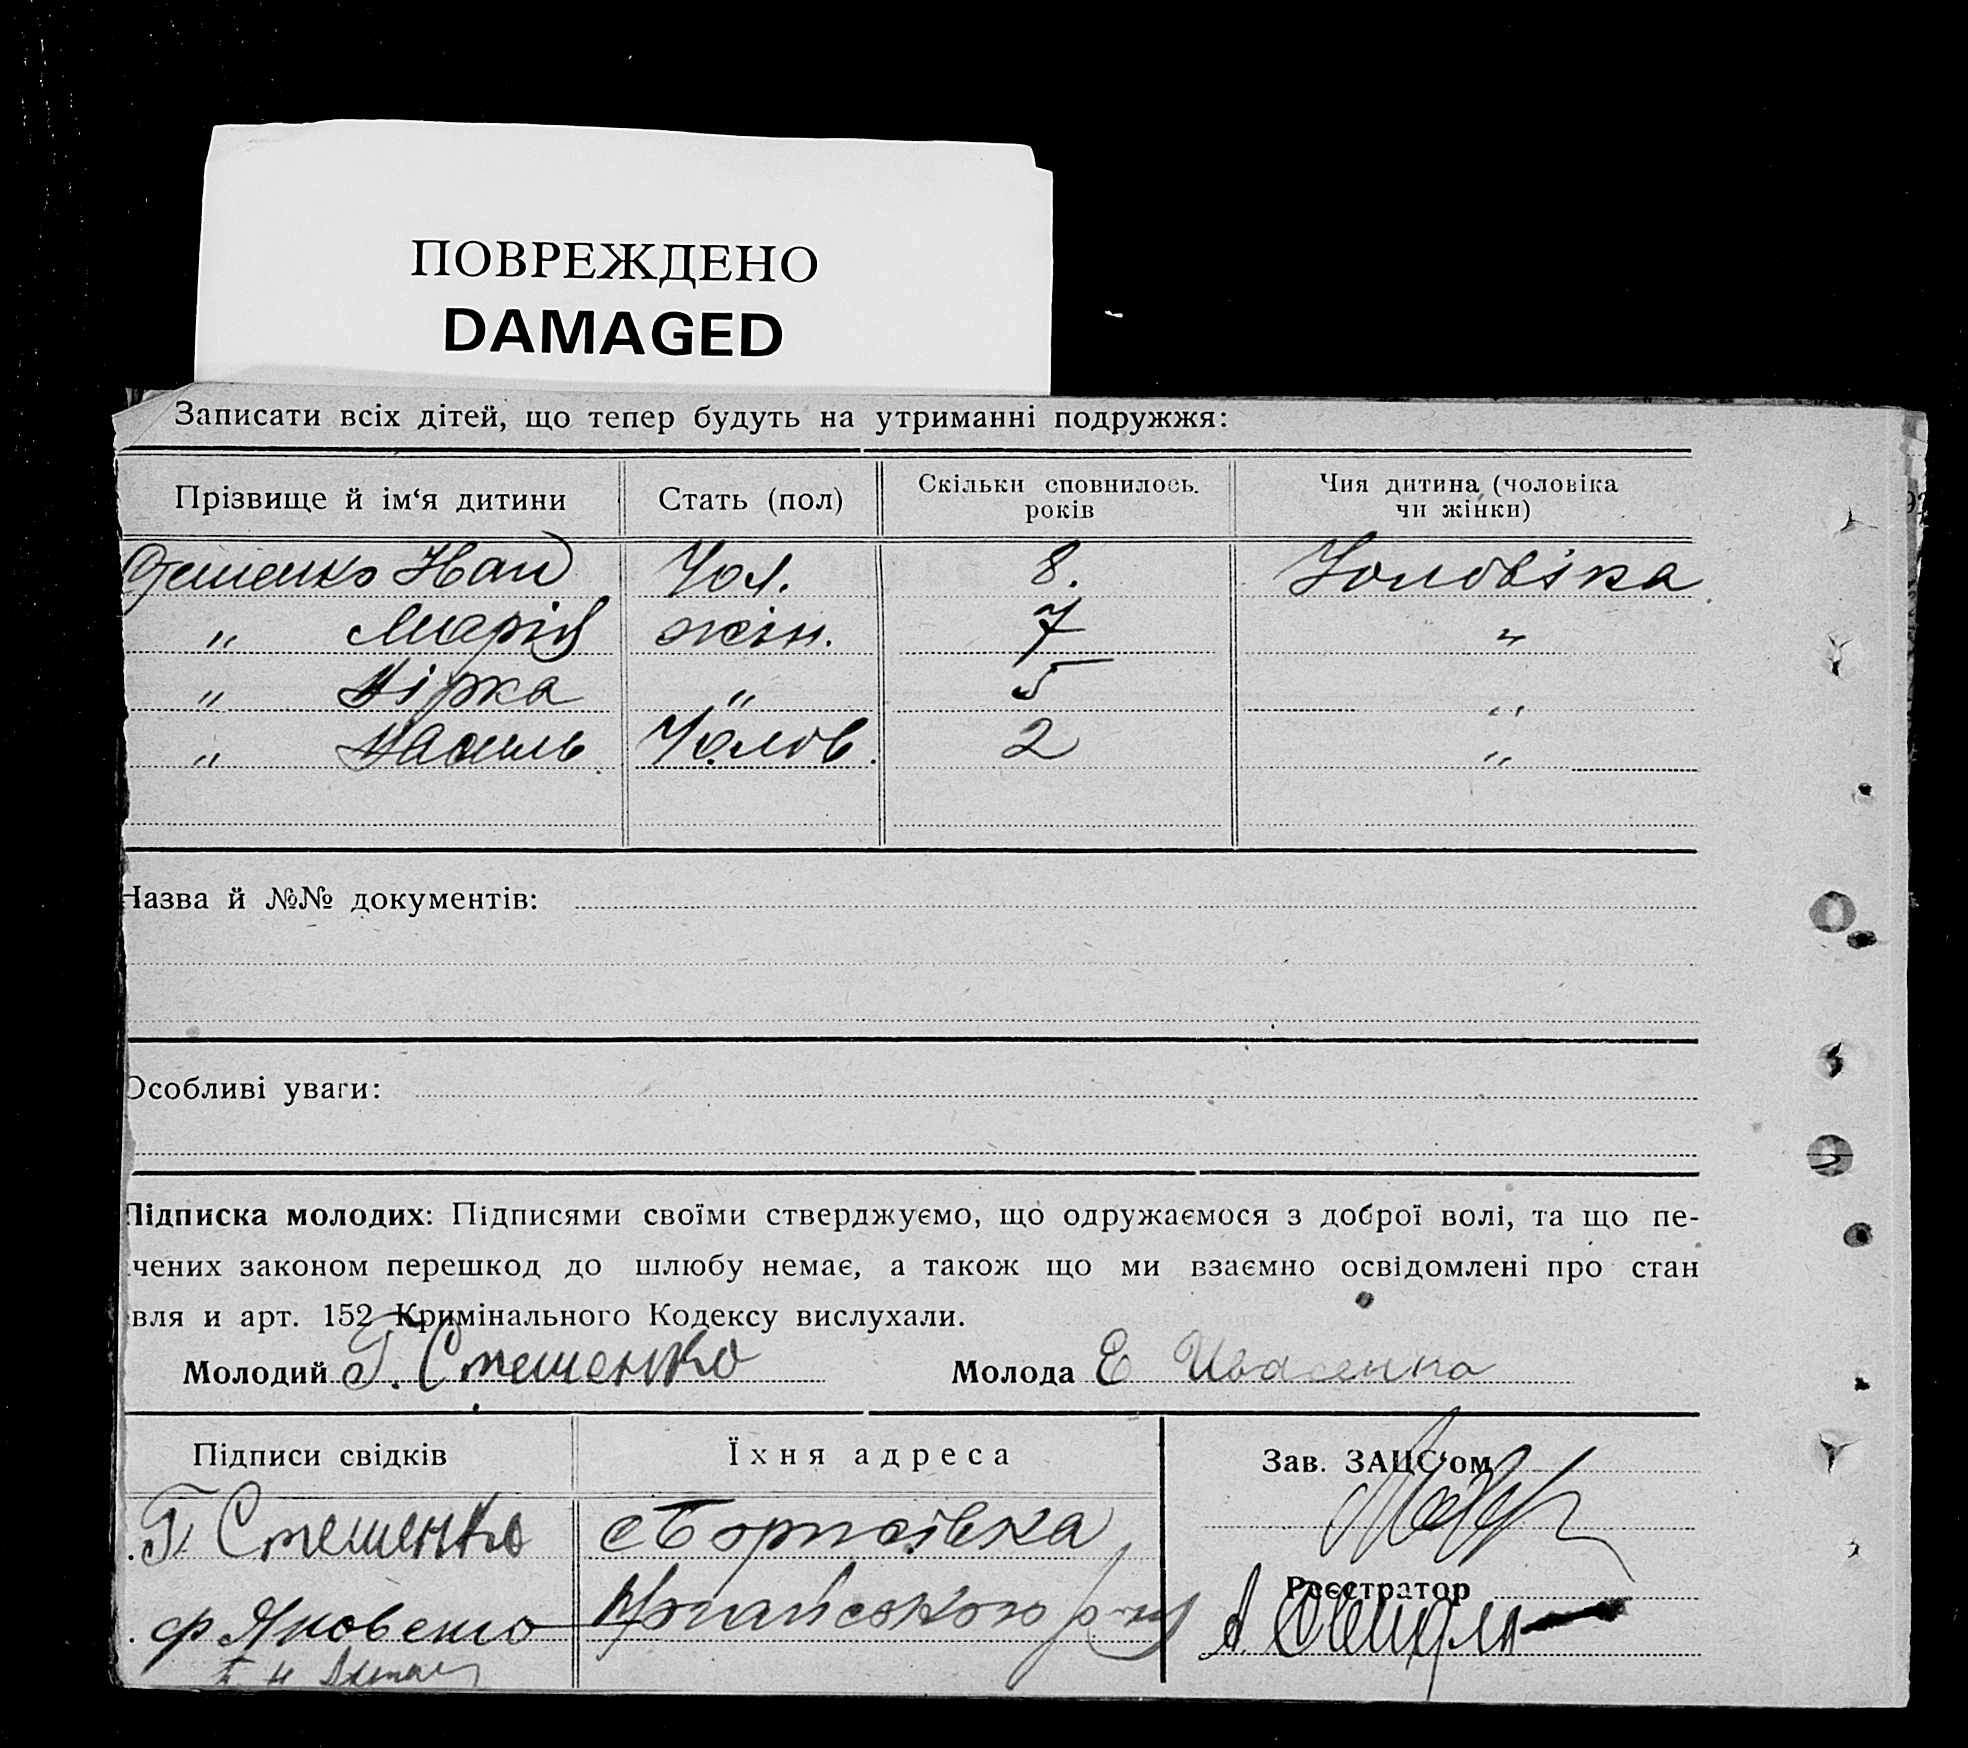 ПОВРЕЖДЕНО
DAMAGED
Записати всіх дітей, що тепер будуть на утриманні подружжя:
Прізвище й ім‘я дитини Стать (пол) Скільки сповнилось років Чия дитина (чоловіка чи жінки)
Стешенко Іван Чол. 8. Чоловіка
„ Марія жін. 7 „
„ Вірка „ 5 „
„ Василь Чолов. 2 „
Назва й №№ документів:
Особливі уваги:
Підписка молодих: Підписями своїми стверджуємо, що одружаємося з доброї волі, та що пе-
чених законом перешкод до шлюбу немає, а також що ми взаємно освідомлені про стан
вля и арт. 152 Кримінального Кодексу вислухали.
Молодий Г. Стешенко Молода Е Ивасенко
Підписи свідків Їхня адреса Зав. ЗАЦС‘ом
Г. Стешенко с Борисівка
Реєстратор
Ф Яковенко